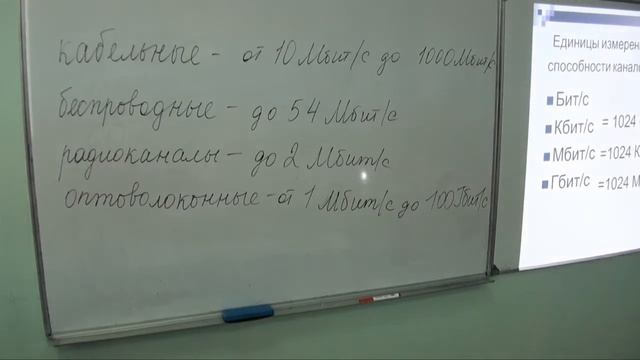 кабельные - от 10 Мбит/с до 1000Мбит/с
беспроводные - до 54 Мбит/с
радиоканалы - до 2 Мбит/с
оптоволоконные - от 1 Мбит/с до 100Гбит/с
Единицы измерен
способности канало
Бит/с
Кбит/с = 1024
Мбит/с =1024 К
Гбит/с =1024 М